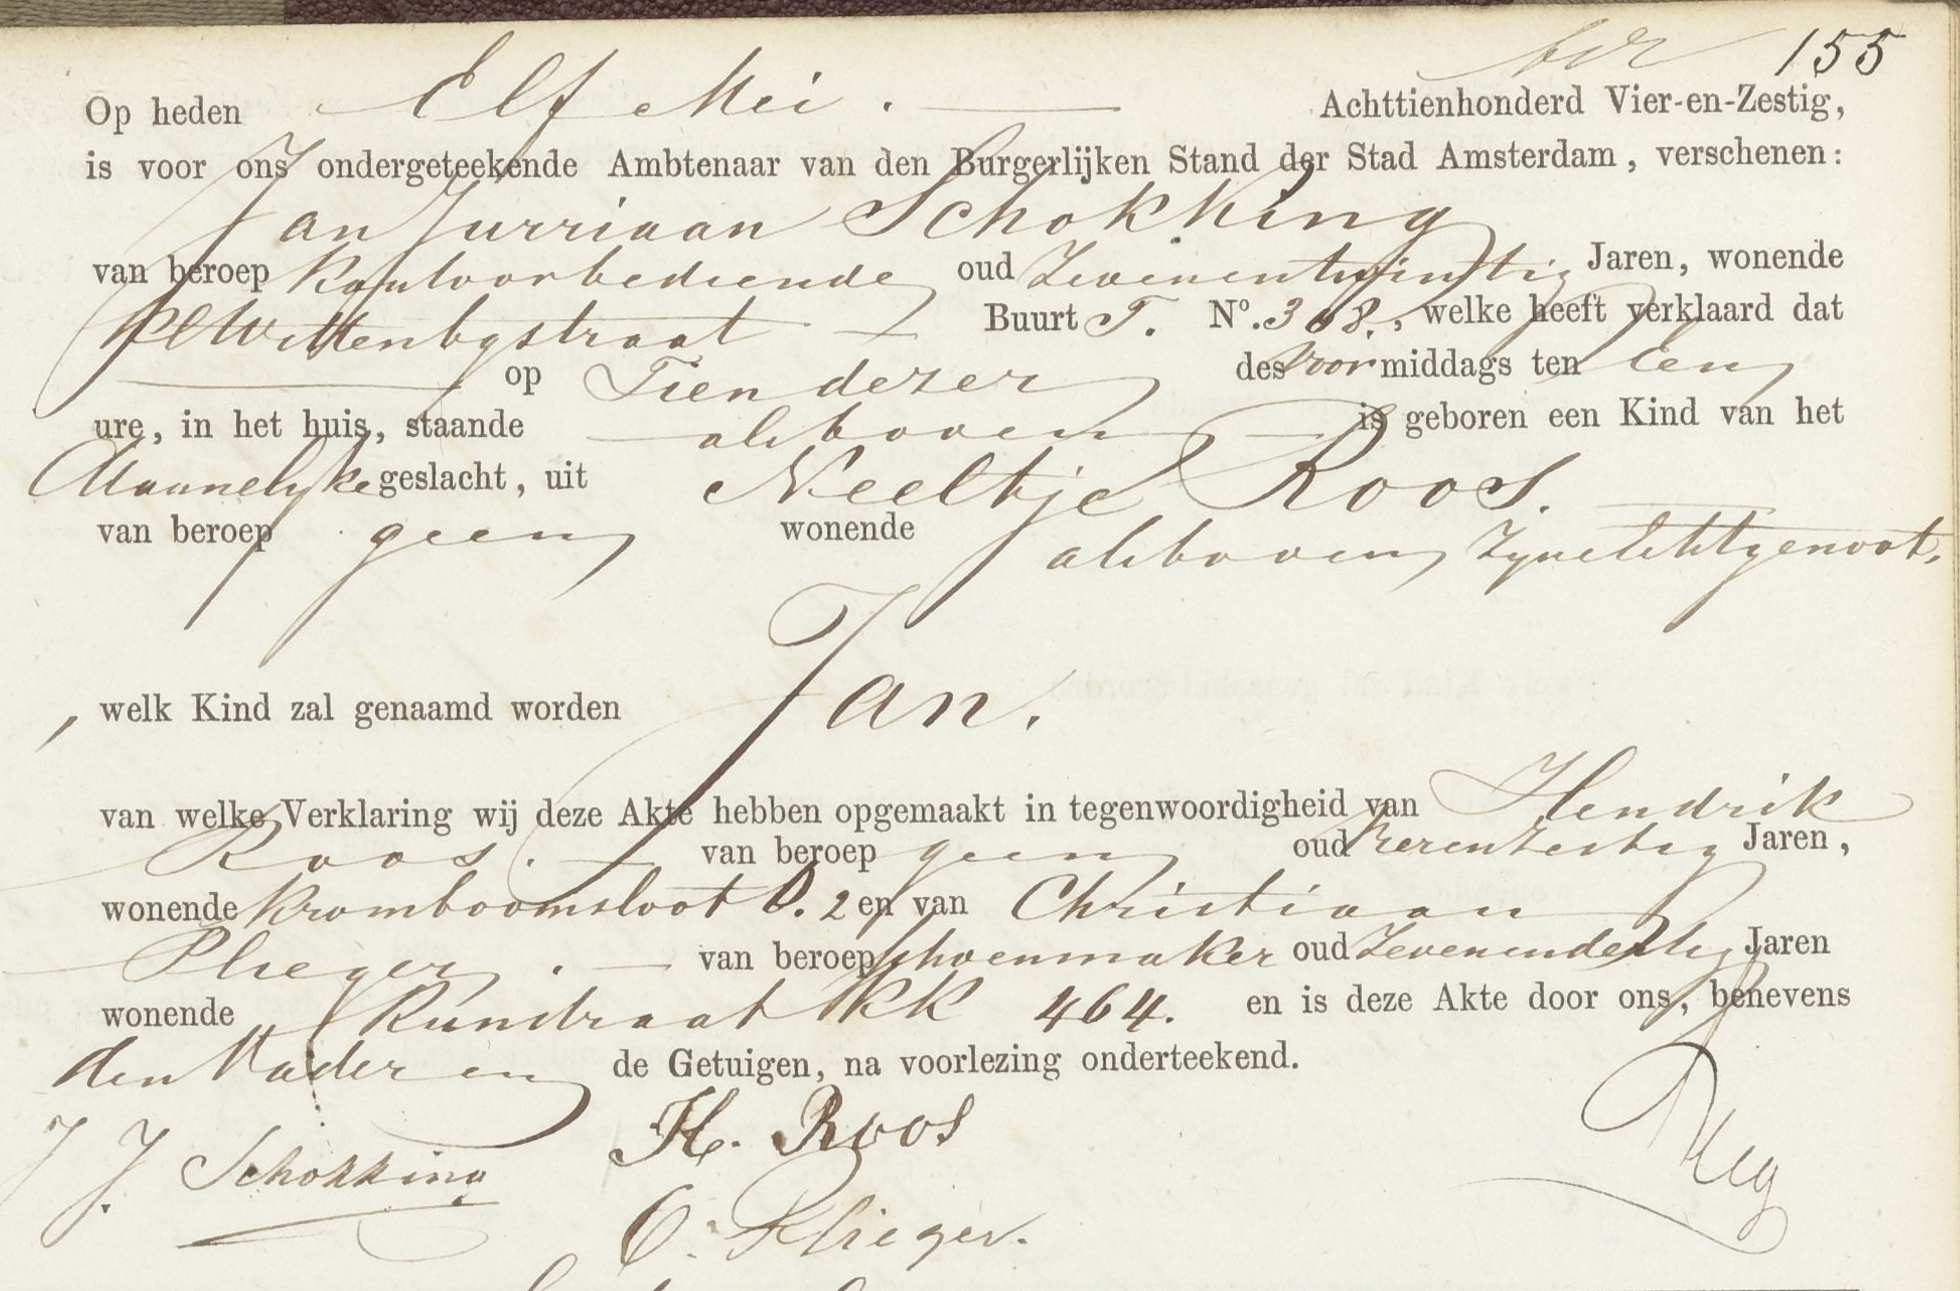 155
Op heden Elf Mei. Achttienhonderd Vier-en-Zestig,
is voor ons ondergeteekende Ambtenaar van den Burgerlijken Stand der Stad Amsterdam, verschenen:
Jan Jurriaan Schokking
van beroep Kantoorbediende oud Zevenentwintig Jaren, wonende
Kl Wittenbgstraat Buurt T. No. 308., welke heeft verklaard dat
op Tien dezer des voormiddags ten een
ure, in het huis, staande alsboven is geboren een Kind van het
Mannelijke geslacht, uit Neeltje Roos.
van beroep geen wonende alsboven zyne Echtgenoot.
, welk Kind zal genaamd worden Jan.
van welke Verklaring wij deze Akte hebben opgemaakt in tegenwoordigheid van Hendrik
Roos. van beroep geen oud Jaren,
wonende Kromboomsloot O. 2 en van Christiaan
Plieger. van beroep schoenmaker oud Zevenendertig Jaren
wonende KK 464. en is deze Akte door ons, benevens
den Vader en de Getuigen, na voorlezing onderteekend.
J. J. Schokking
H. Roos
C. Plieger.